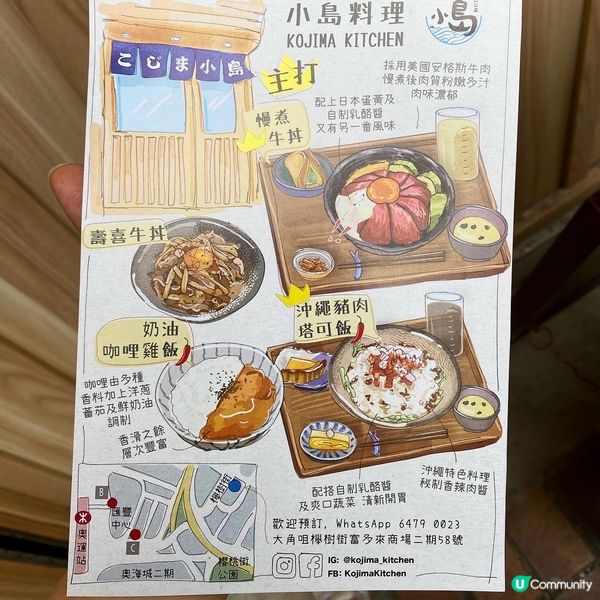 小島料理
KOJIMA KITCHEN
小島
こじま小島
主打
慢煮
牛丼
採用美國安格斯牛肉
慢煮後肉質粉嫩多汁
肉味濃郁
配上日本蛋黃及
自制乳酪醬
又有另一番風味
壽喜牛丼
奶油
咖哩雞飯
咖哩由多種
香料加上洋蔥
蕃茄及鮮奶油
調制
香滑之餘
層次豐富
沖繩豬肉
塔可飯
配搭自制乳酪醬
及爽口蔬菜 清新開胃
沖繩特色料理
秘制香辣肉醬
B
匯豐
中心
C
奧運站
奧海城二期
櫸樹街
櫻桃街
公園
歡迎預訂, WhatsApp 6479 0023
大角咀櫸樹街富多來商場二期58號
IG: @kojima_kitchen
FB: KojimaKitchen
U Community